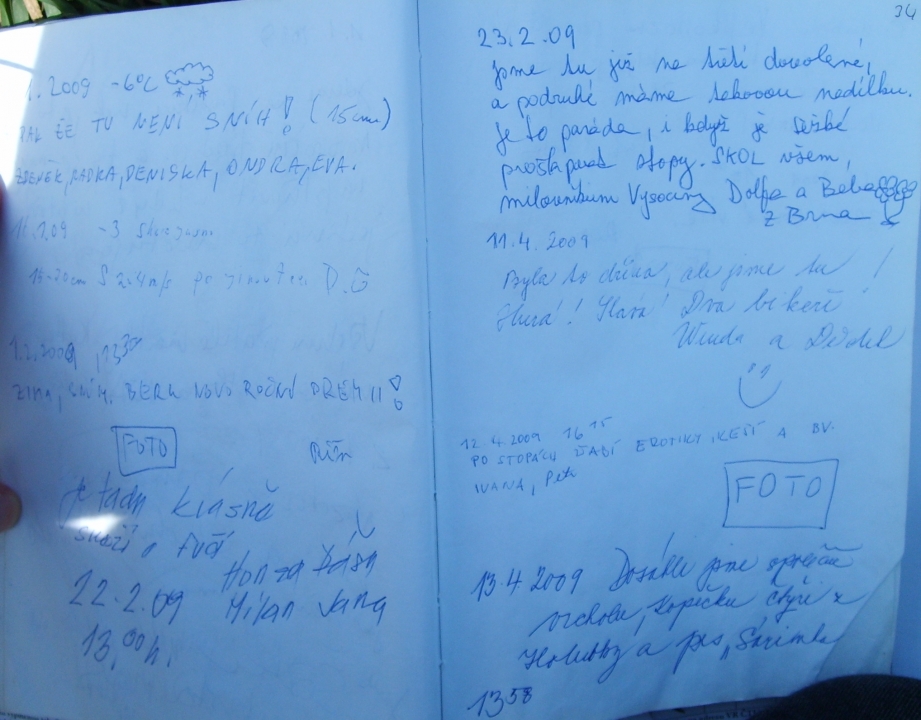 .2009 -6°C
ŽE TU NENÍ SNÍH! (15cm)
ZDENĚK, RADKA, DENISKA, ONDRA, EVA.
.09 -3
15-20cm S 2-4m/s po D.G
1.2.2009, 13
ZIMA, SNÍH. BERU NOVOROČNÍ
FOTO
Je tady krásně
sněží a fučí
22.2.09 Honza
Milan Jana
13,00h.
34
23.2.09
jsme tu již na třetí dovolené,
a podruhé máme takovou nadílku.
Je to paráda, i když je těžké
prošlapovat stopy. SKOL všem,
milovníkům Vysočiny Dolfa a Béba
z Brna
11.4.2009
Byla to dřina, ale jsme tu!
Hurá! Sláva! Dva bikeři!
Wenda a Dědek
12.4.2009 16 15
PO STOPÁCH EROTIKY, KEŠÍ A BV.
IVANA, Petr
FOTO
13.4 2009 Dosáhli jsme
vrcholu, kopečku čtyři z
Holubky a pes
13 58